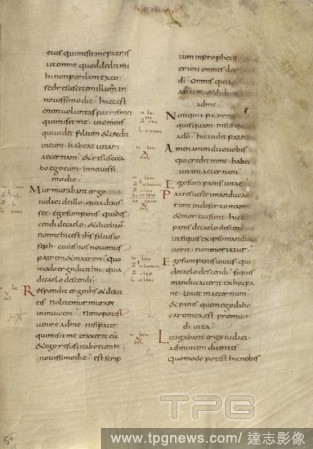 eius qui misit me patris
ut omne quod dedit mi
hi non perdam ex eo
sed resuscitem illum in
novissimo die haec est
enim voluntas patris mei
qui misit me ut omnis
qui videt filium & credit
in eum habeat vitam
aeternam & resuscita
bo ego eum in novissi
mo die
Murmurabant ergo
iudaei de illo quia dixis
set ego sum panis qui de
caelo descendi & dicebant
nonne hic est ihs filius io
seph cuius nos novimus
patrem & matrem quo
modo ergo dicit hic quia
de caelo descendi
Respondit ergo ihs & dixit
eis nolite murmurare
in invicem nemo potest
venire ad me nisi pater
qui misit me traxerit eum
& ego resuscitabo eum in
novissimo die est scrip
tum in prophetis
erunt omnes do
di omnis qui
ad me
Non quia patrem
quisquam nisi qui
a do hic vidit patrem
Amen amen dico vobis
qui credit in me habet
vitam aeternam
Ego sum panis vitae
Patres vestri manducave
runt in deserto manna
& mortui sunt hic est
panis de caelo descendens
ut si quis ex ipso mandu
caverit non moriatur
Ego sum panis vivus qui
de caelo descendi si quis
manducaverit ex hoc pa
ne vivet in aeternum
& panis quem ego dabo
caro mea est pro mundi
vita
Litigabant ergo iudaei
ad invicem dicentes
quomodo potest hic nobis
TPG
www.tpgnews.com / 達志影像